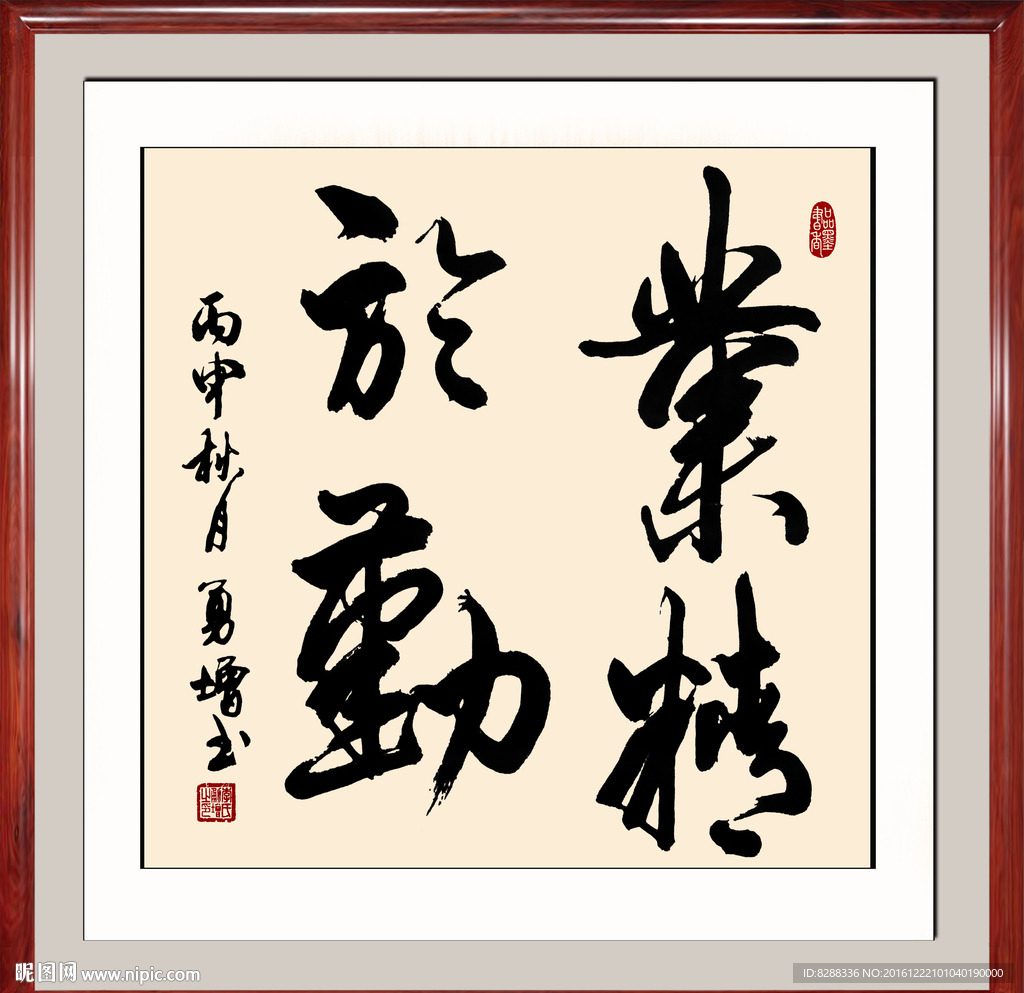 業精
於勤
丙申秋月勇增书
品墨書香
昵图网 www.nipic.com
ID:8288336 NO:20161222101040190000